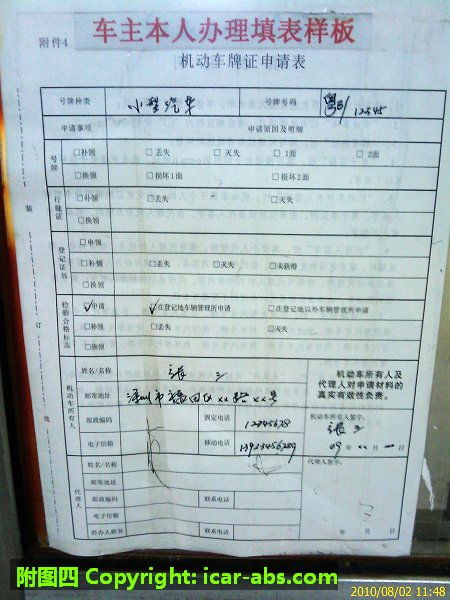 附件4
车主本人办理填表样板
机动车牌证申请表
号牌种类 小型汽车 号牌号码 粤B/12345
申请事项 申请原因及明细
号牌 □补领 □丢失 □灭失 □1面 □2面
□换领 □损坏1面 □损坏2面
行驶证 □补领 □丢失 □灭失
□换领
登记证书 □申领
□补领 □丢失 □灭失 □未获得
□换领
检验合格标志 ☑申请 ☑在登记地车辆管理所申请 □在登记地以外车辆管理所申请
□补领 □丢失 □灭失
□换领
机动车所有人 姓名/名称 張三
邮寄地址 深圳市福田区xx路xx号
邮政编码 固定电话 12345678
电子信箱 移动电话 13923456789
机动车所有人及代理人对申请材料的真实有效性负责。
机动车所有人签字:
張三
09 年 xx 月 xx 日
代理人 姓名/名称
邮寄地址
邮政编码 联系电话
电子信箱
经办人姓名 联系电话
代理人签字:
年 月 日
装
订
线
附图四 Copyright: icar-abs.com
2010/08/02 11:48